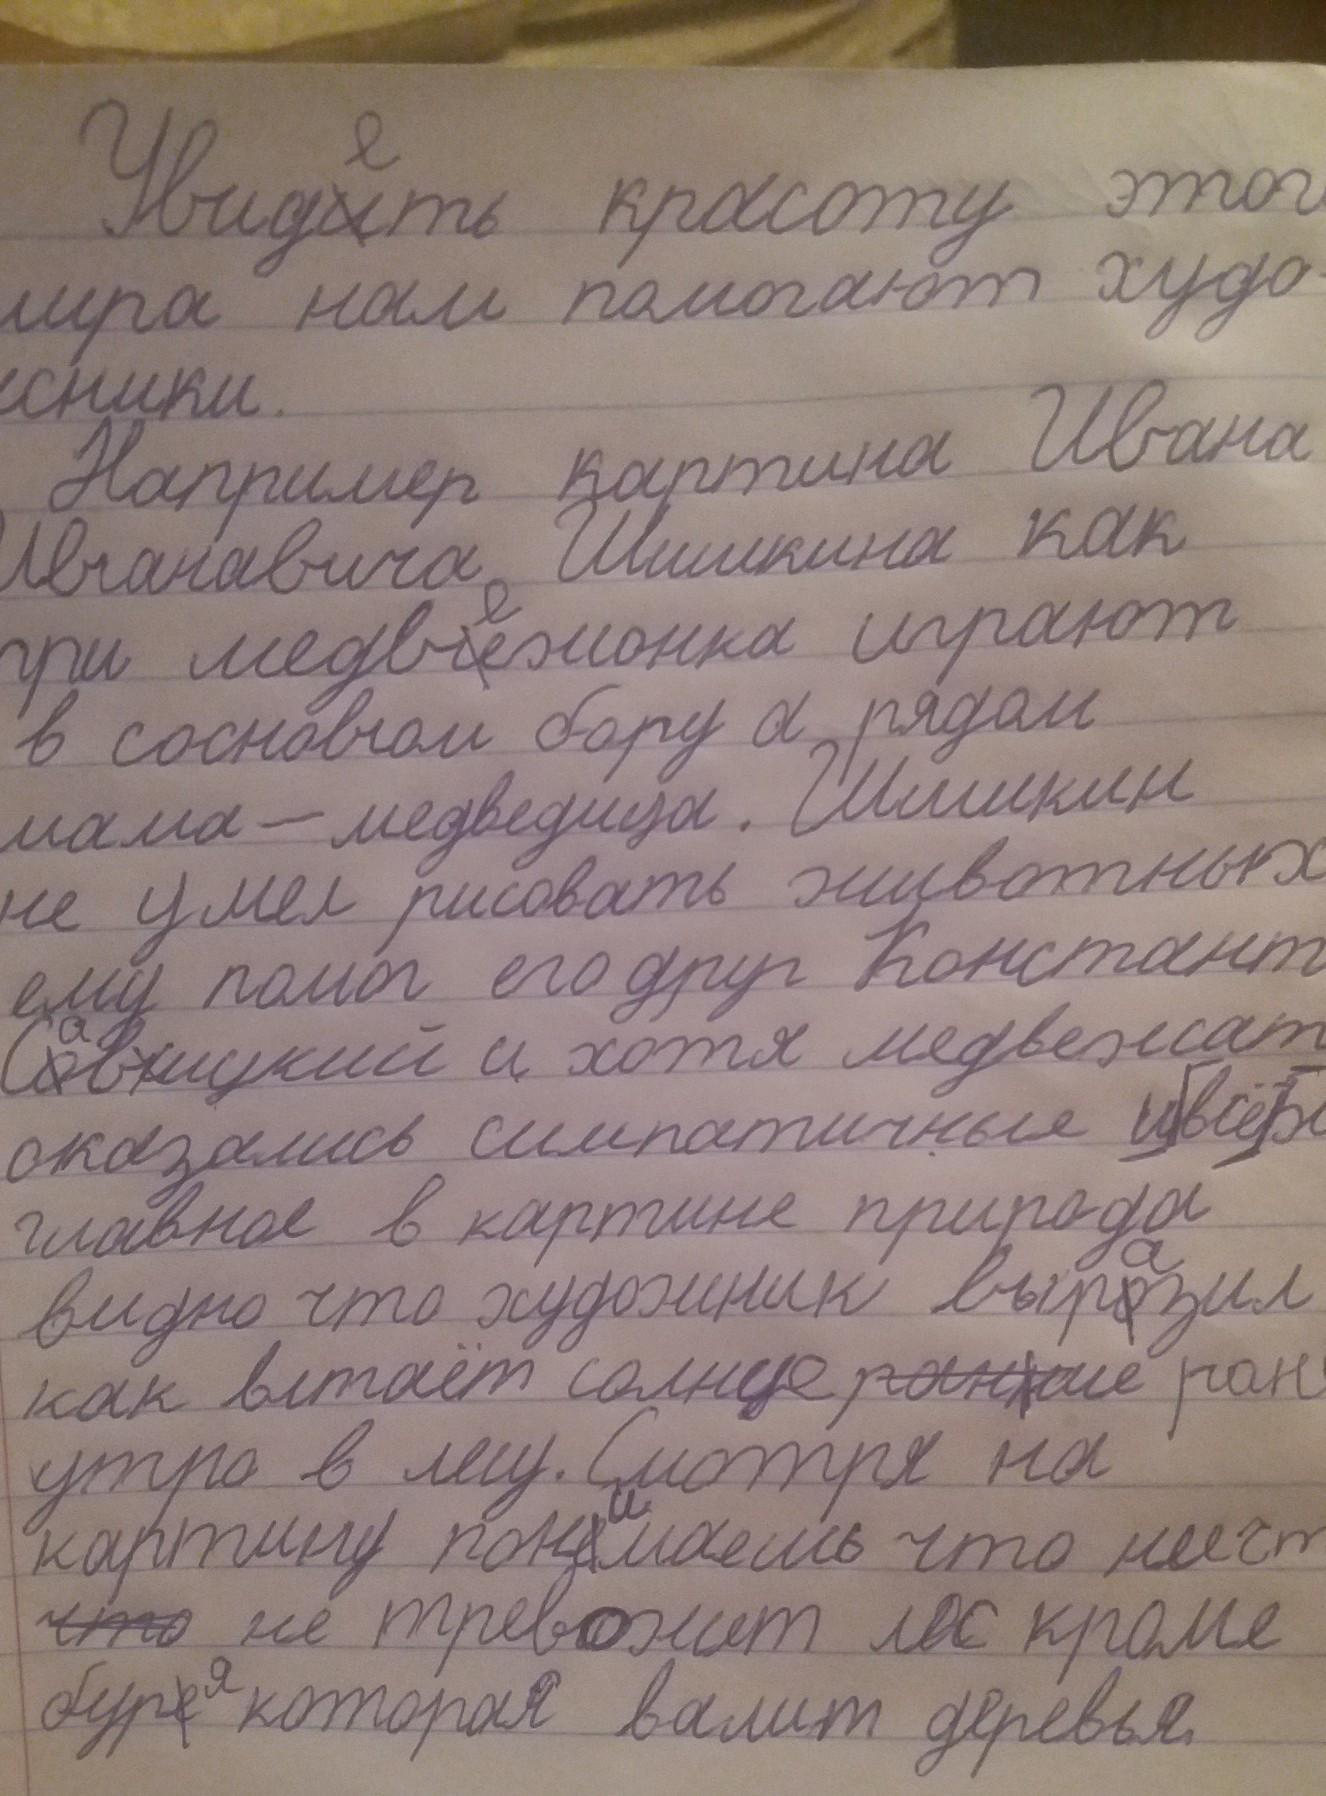 Увидеть красоту этог
мира нам помогают худо-
жники.
Например картина Ивана
Иванавича Шишкина как
три медвежонка играют
в сосновом бору а рядом
мама — медведица. Шишкин
не умел рисовать животных
ему помог его друг Констант
Савицкий и хотя медвежат
оказались симпатичные и всё
главное в картине природа
видно что художник выразил
как встаёт солнце ран
утро в лесу. Смотря на
картину понимаешь что
что не тревожит лес кроме
буря которая валит деревья.